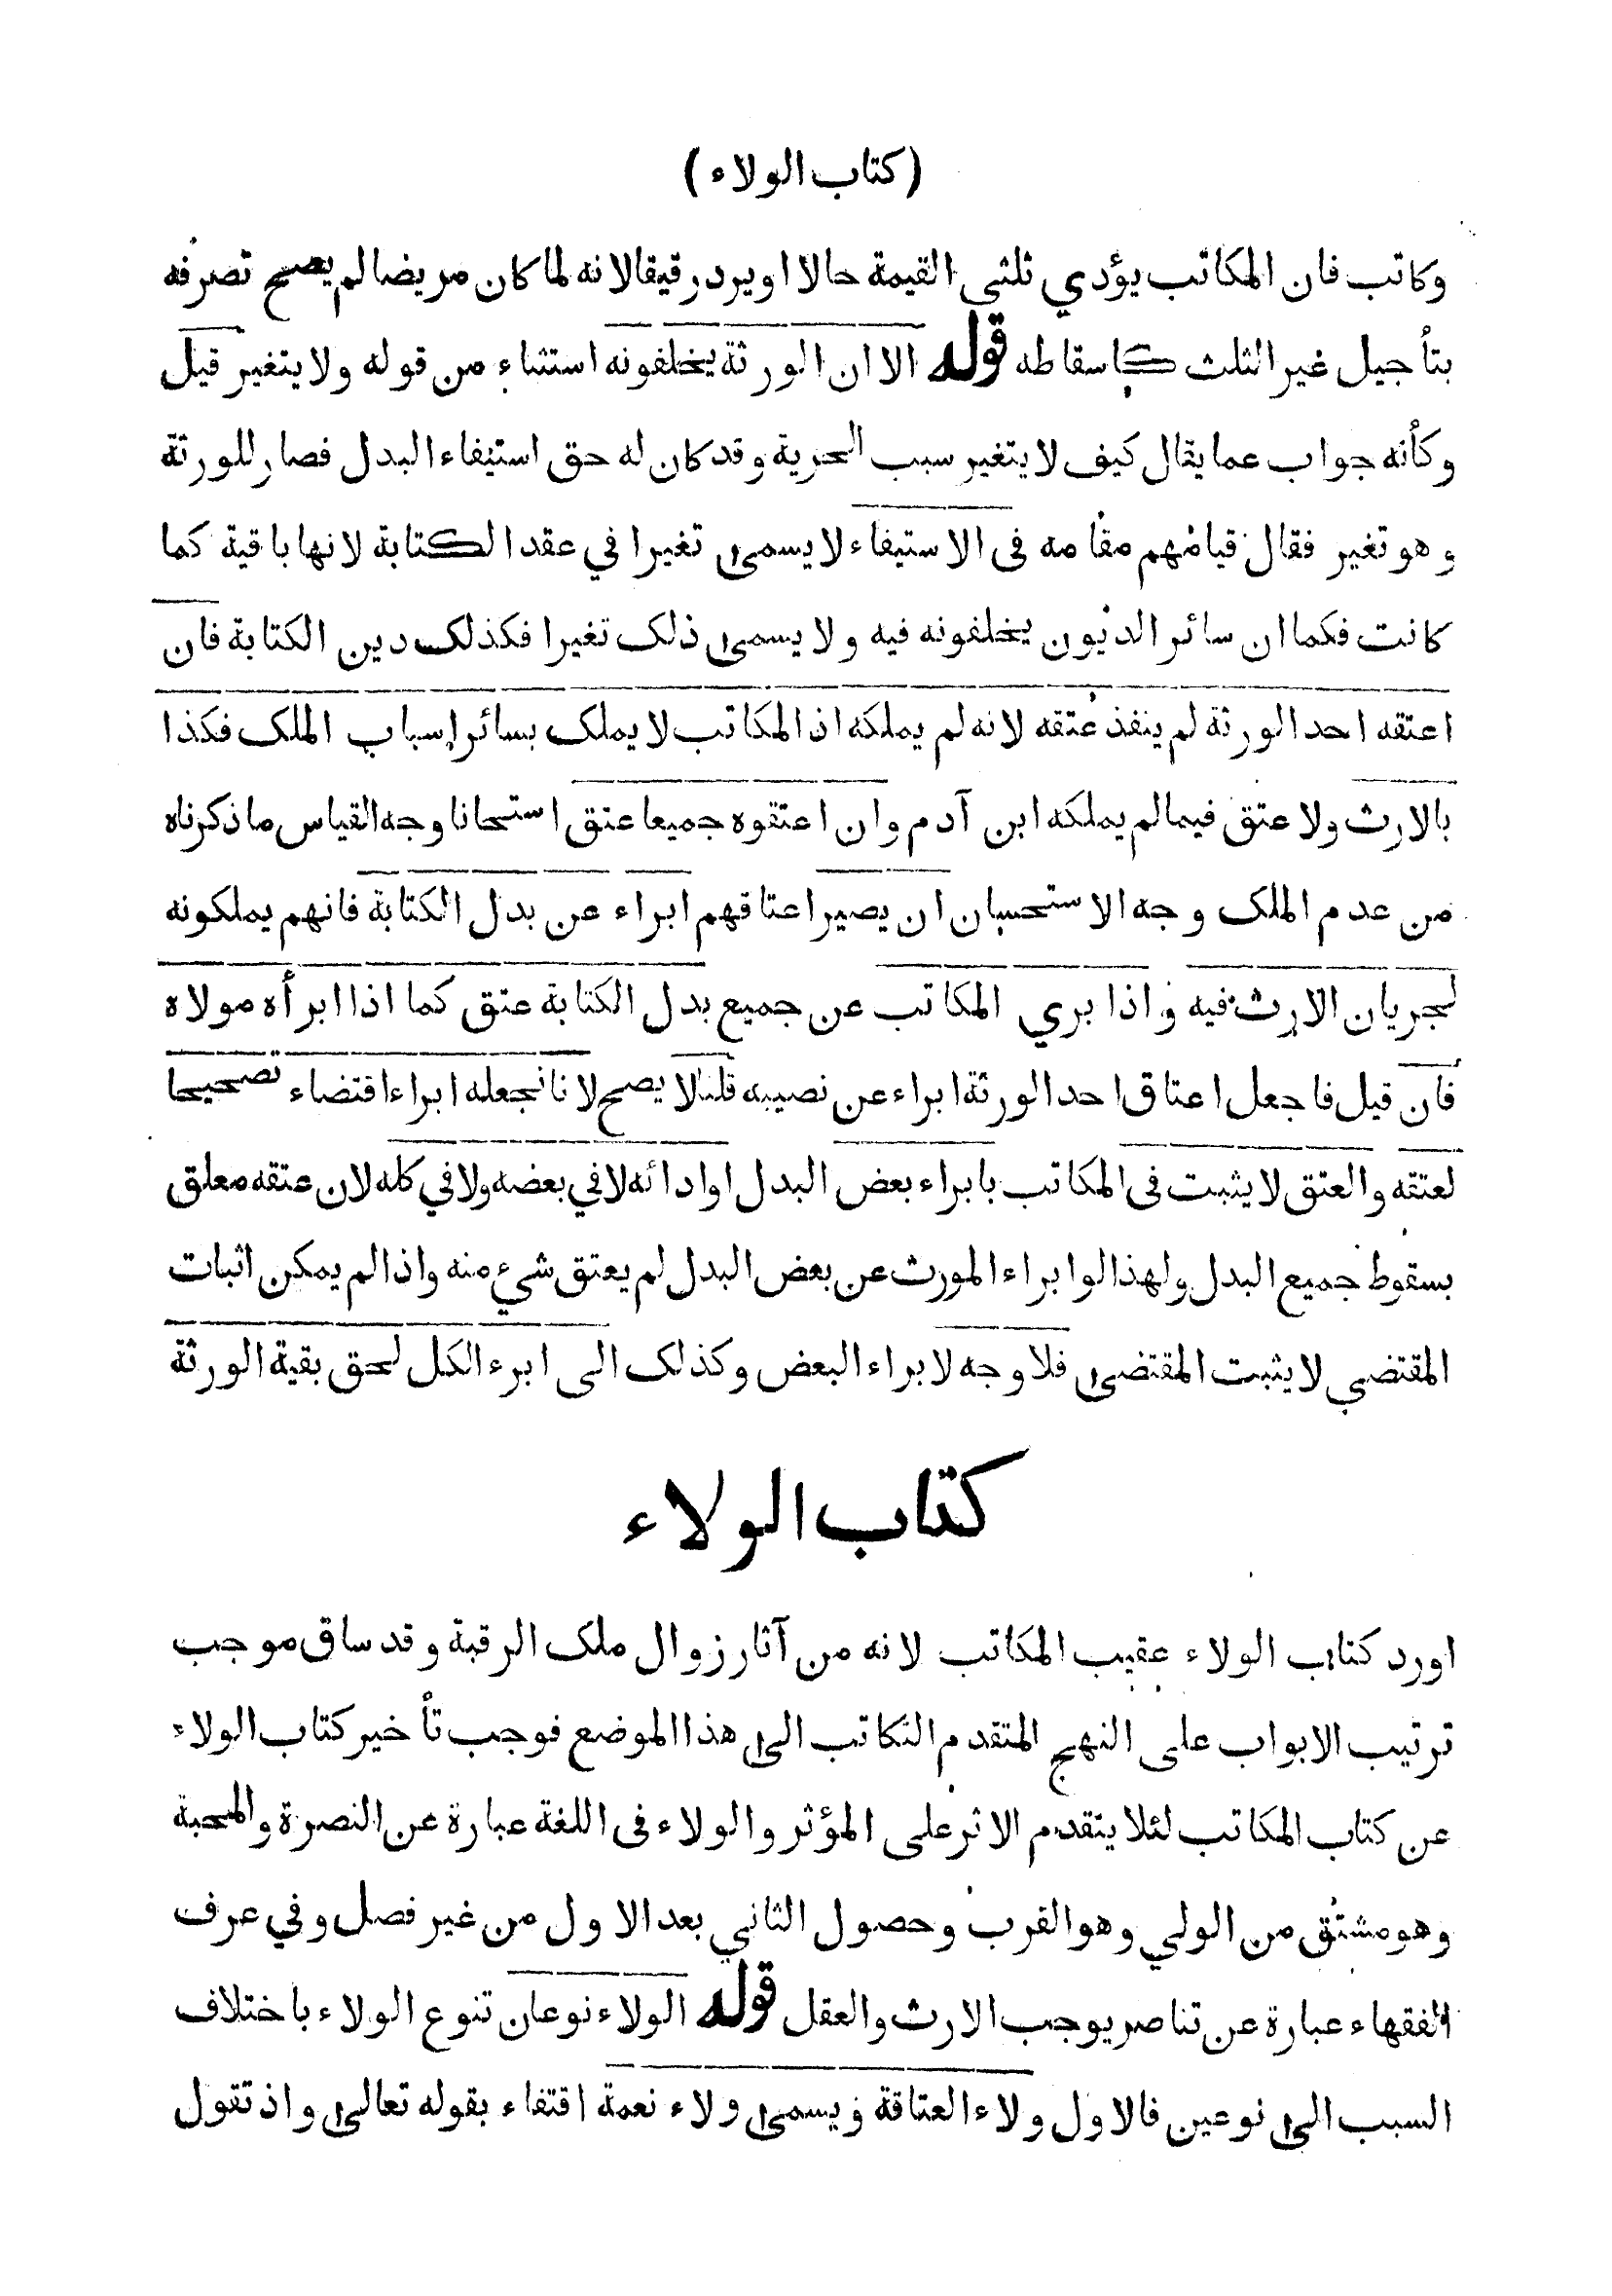 (كتاب الولاء)
وكاتب فان المكاتب يؤدي ثلثى القيمة حالا او يرد رقيقا لانه لما كان مريضا لم يصح تصرفه
بتأجيل غير الثلث كاسقاطه قوله الا ان الورثة يخلفونه استثناء من قوله ولا يتغير قيل
وكأنه جواب عما يقال كيف لا يتغير سبب الحرية وقد كان له حق استيفاء البدل فصار للورثة
وهو تغير فقال قيامهم مقامه فى الاستيفاء لا يسمى تغيرا في عقد الكتابة لانها باقية كما
كانت فكما ان سائر الديون يخلفونه فيه ولا يسمى ذلك تغيرا فكذلك دين الكتابة فان
اعتقه احد الورثة لم ينفذ عتقه لانه لم يملكه اذ المكاتب لا يملك بسائر اسباب الملك فكذا
بالارث ولا عتق فيما لم يملكه ابن آدم وان اعتقوه جميعا عتق استحانا وجه القياس ما ذكرناه
من عدم الملك وجه الاستحسان ان يصير اعتاقهم ابراء عن بدل الكتابة فانهم يملكونه
لجريان الارث فيه واذا بري المكاتب عن جميع بدل الكتابة عتق كما اذا ابرأه مولاه
فان قيل فاجعل اعتاق احد الورثة ابراء عن نصيبه قلنا لا يصح لانا نجعله ابراء اقتضاء تصحيحا
لعتقه والعتق لا يثبت فى المكاتب بابراء بعض البدل او ادائه لا في بعضه ولا في كله لان عتقه معلق
بسقوط جميع البدل ولهذا لو ابراء المورث عن بعض البدل لم يعتق شيء منه واذا لم يمكن اثبات
المقتضي لا يثبت المقتضى فلا وجه لابراء البعض وكذلك الى ابرء الكل لحق بقية الورثة
كتاب الولاء
اورد كتاب الولاء عقيب المكاتب لانه من آثار زوال ملك الرقبة وقد ساق موجب
ترتيب الابواب على النهج المتقدم التكاتب الى هذا الموضع فوجب تأخير كتاب الولاء
عن كتاب المكاتب لئلا يتقدم الاثر على المؤثر والولاء فى اللغة عبارة عن النصرة والمحبة
وهو مشتق من الولي وهو القرب وحصول الثاني بعد الاول من غير فصل وفي عرف
الفقهاء عبارة عن تناصر يوجب الارث والعقل قوله الولاء نوعان تنوع الولاء باختلاف
السبب الى نوعين فالاول ولاء العتاقة ويسمى ولاء نعمة اقتفاء بقوله تعالى واذ تقول